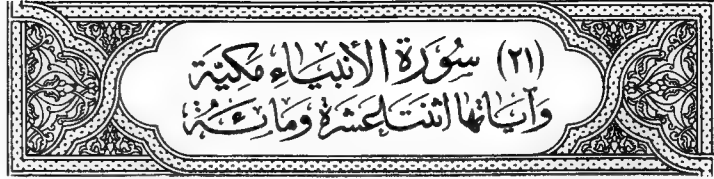 (٢١) سُورَة الأنبيَاءِ مَكيَّة
وَآيَاتها اثنَتَا عَشرَة وَمائة